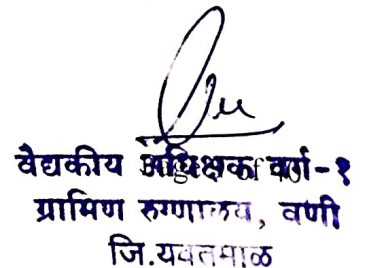 वैद्यकीय अधिक्षक वर्ग-१
ग्रामिण रुग्णालय, वणी
जि.यवतमाळ